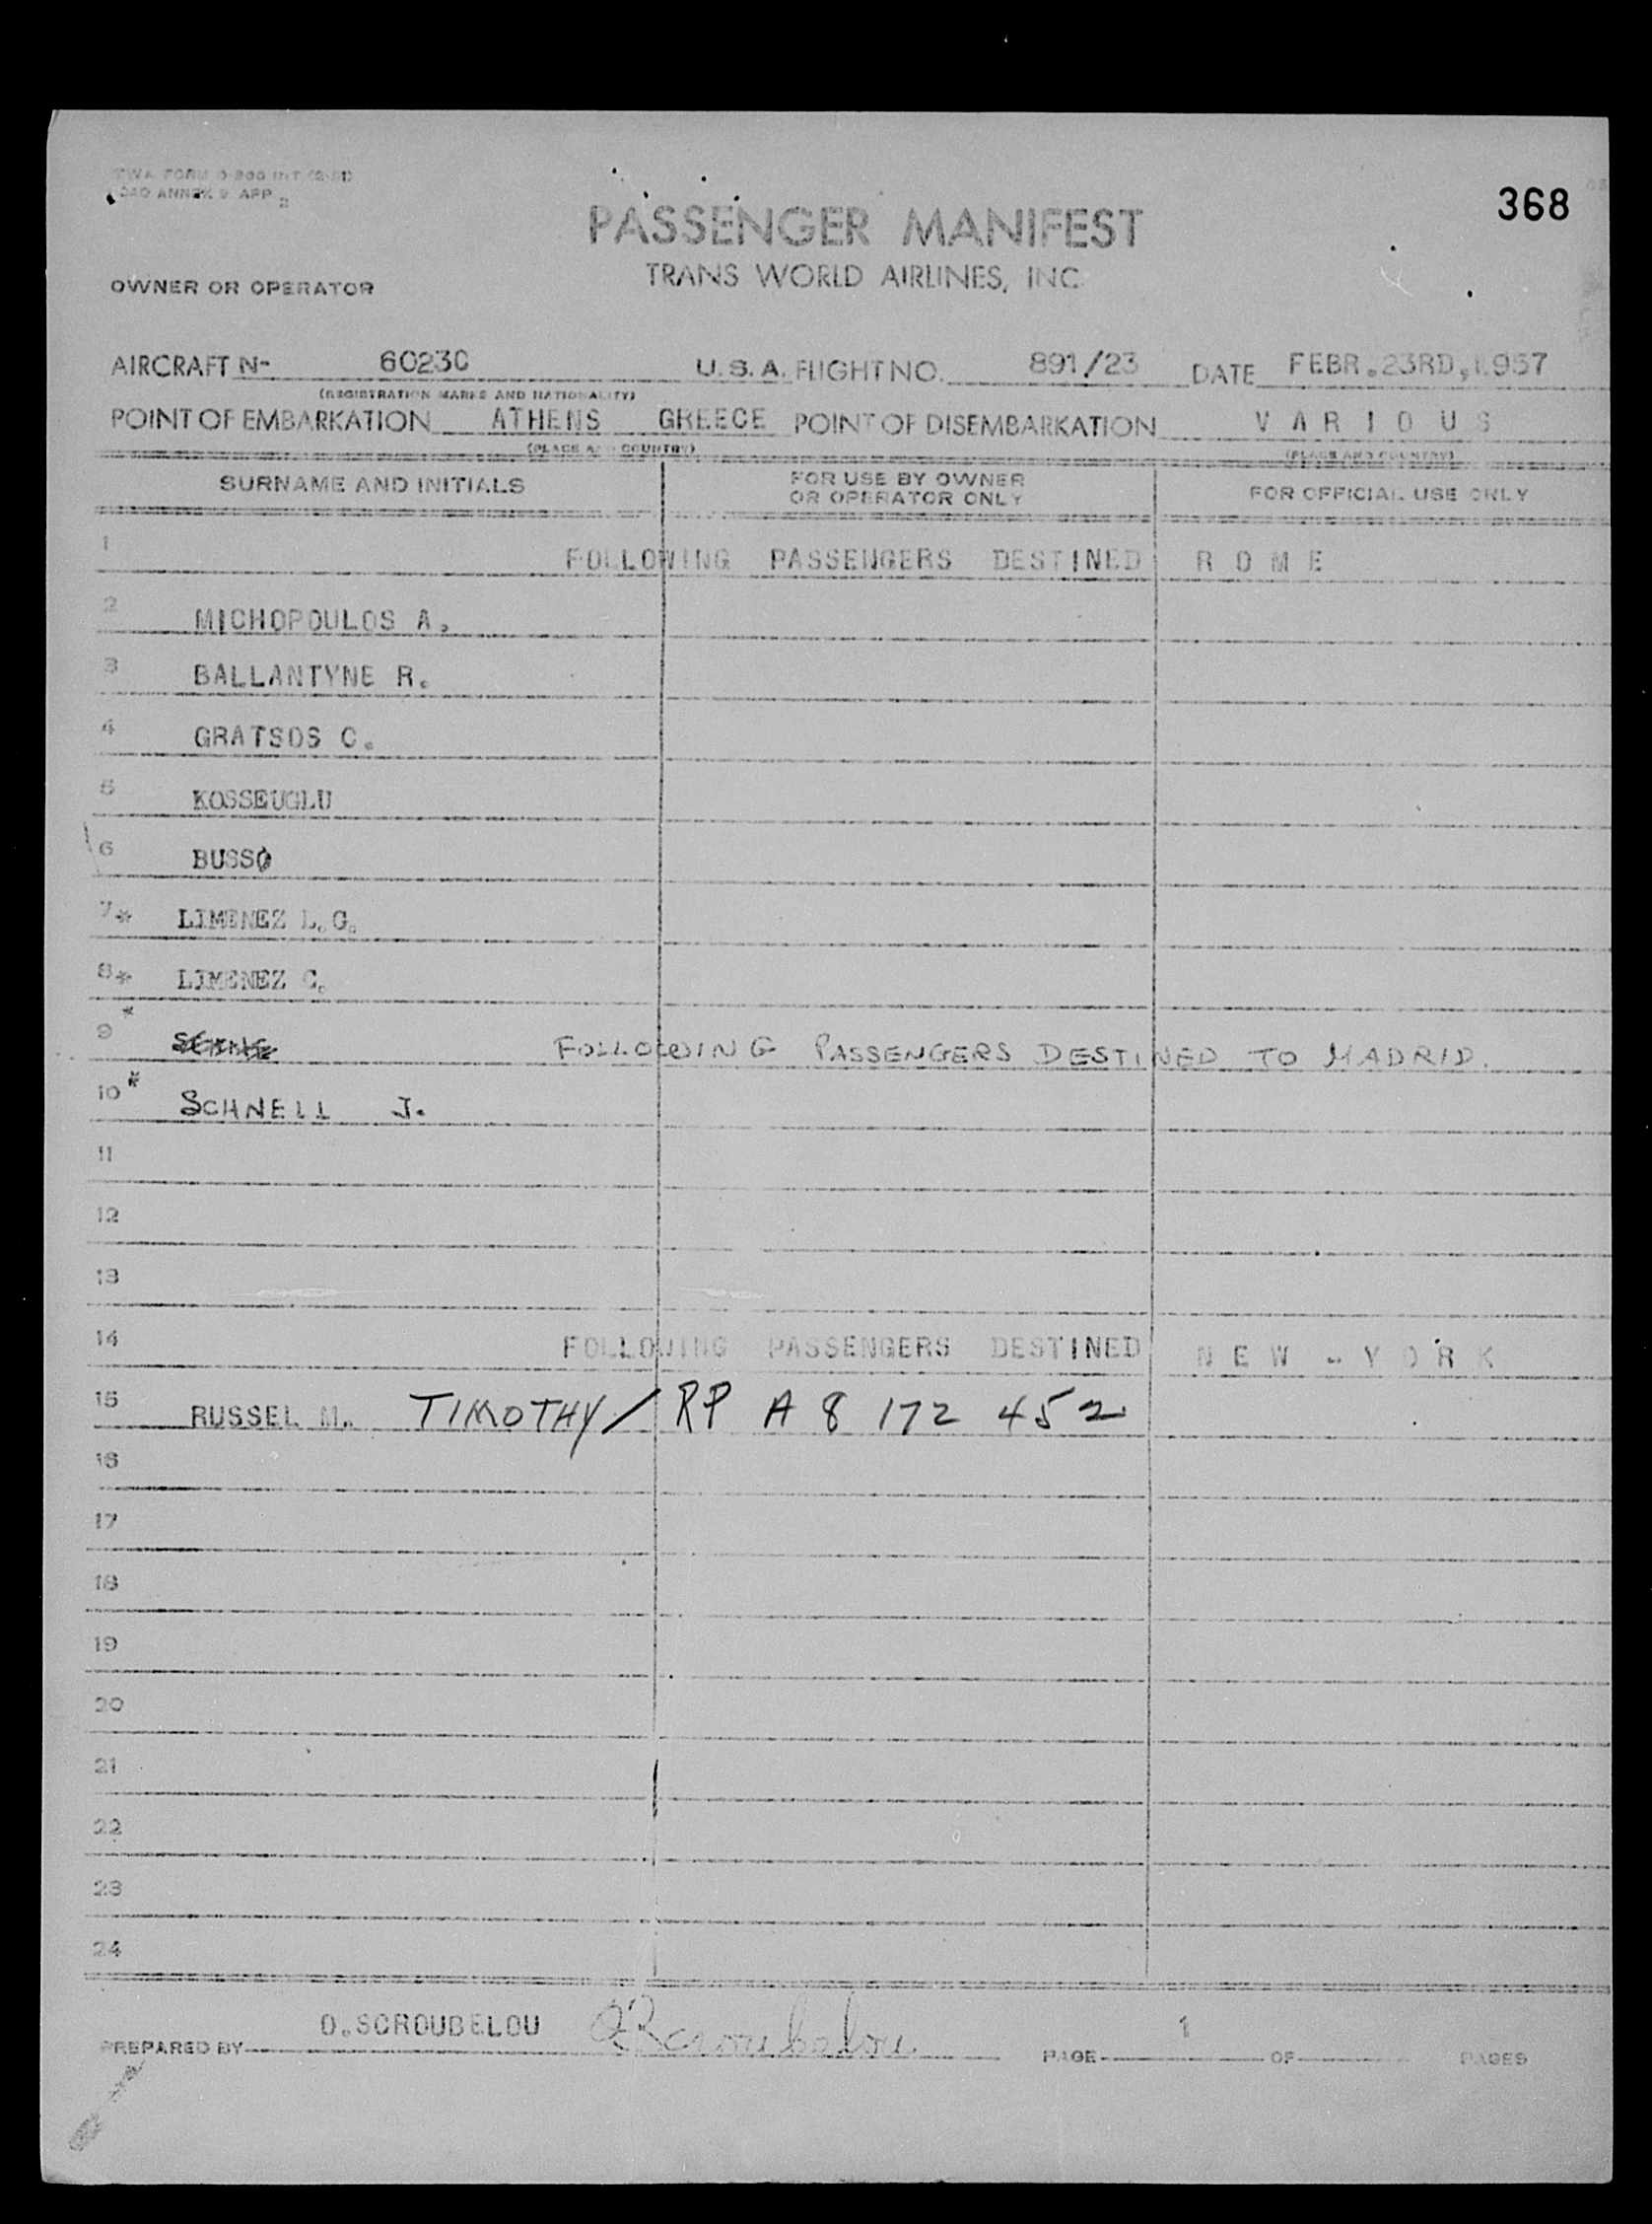 TWA FORM 0-800 INT (2-51)
ICAO ANNEX 9 APP
368
PASSENGER MANIFEST
TRANS WORLD AIRLINES, INC.
OWNER OR OPERATOR
AIRCRAFT N- 6023C U.S.A. FLIGHT NO. 891/23 DATE FEBR.23RD,1957
(REGISTRATION MARKS AND NATIONALITY)
POINT OF EMBARKATION ATHENS GREECE POINT OF DISEMBARKATION VARIOUS
(PLACE AND COUNTRY) (PLACE AND COUNTRY)
SURNAME AND INITIALS FOR USE BY OWNER OR OPERATOR ONLY FOR OFFICIAL USE ONLY
1 FOLLOWING PASSENGERS DESTINED ROME
2 MICHOPOULOS A.
3 BALLANTYNE R.
4 GRATSOS C.
5 KOSSEUGLU
6 BUSSO
7* LIMENEZ L.G.
8* LIMENEZ C.
9* FOLLOWING PASSENGERS DESTINED TO MADRID.
10* SCHNELL J.
11
12
13
14 FOLLOWING PASSENGERS DESTINED NEW-YORK
15 RUSSEL M. TIMOTHY/ RP A 8 172 452
16
17
18
19
20
21
22
23
24
PREPARED BY O.SCROUBELOU OScroubelou PAGE 1 OF PAGES